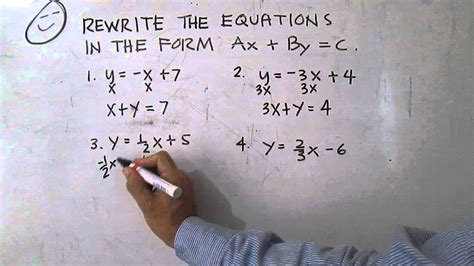 REWRITE THE EQUATIONS
IN THE FORM Ax + By = C.
1. y = -x + 7
x x
x + y = 7
2. y = -3x + 4
3x 3x
3x + y = 4
3. y = 1/2x + 5
-1/2x
4. y = 2/3x - 6